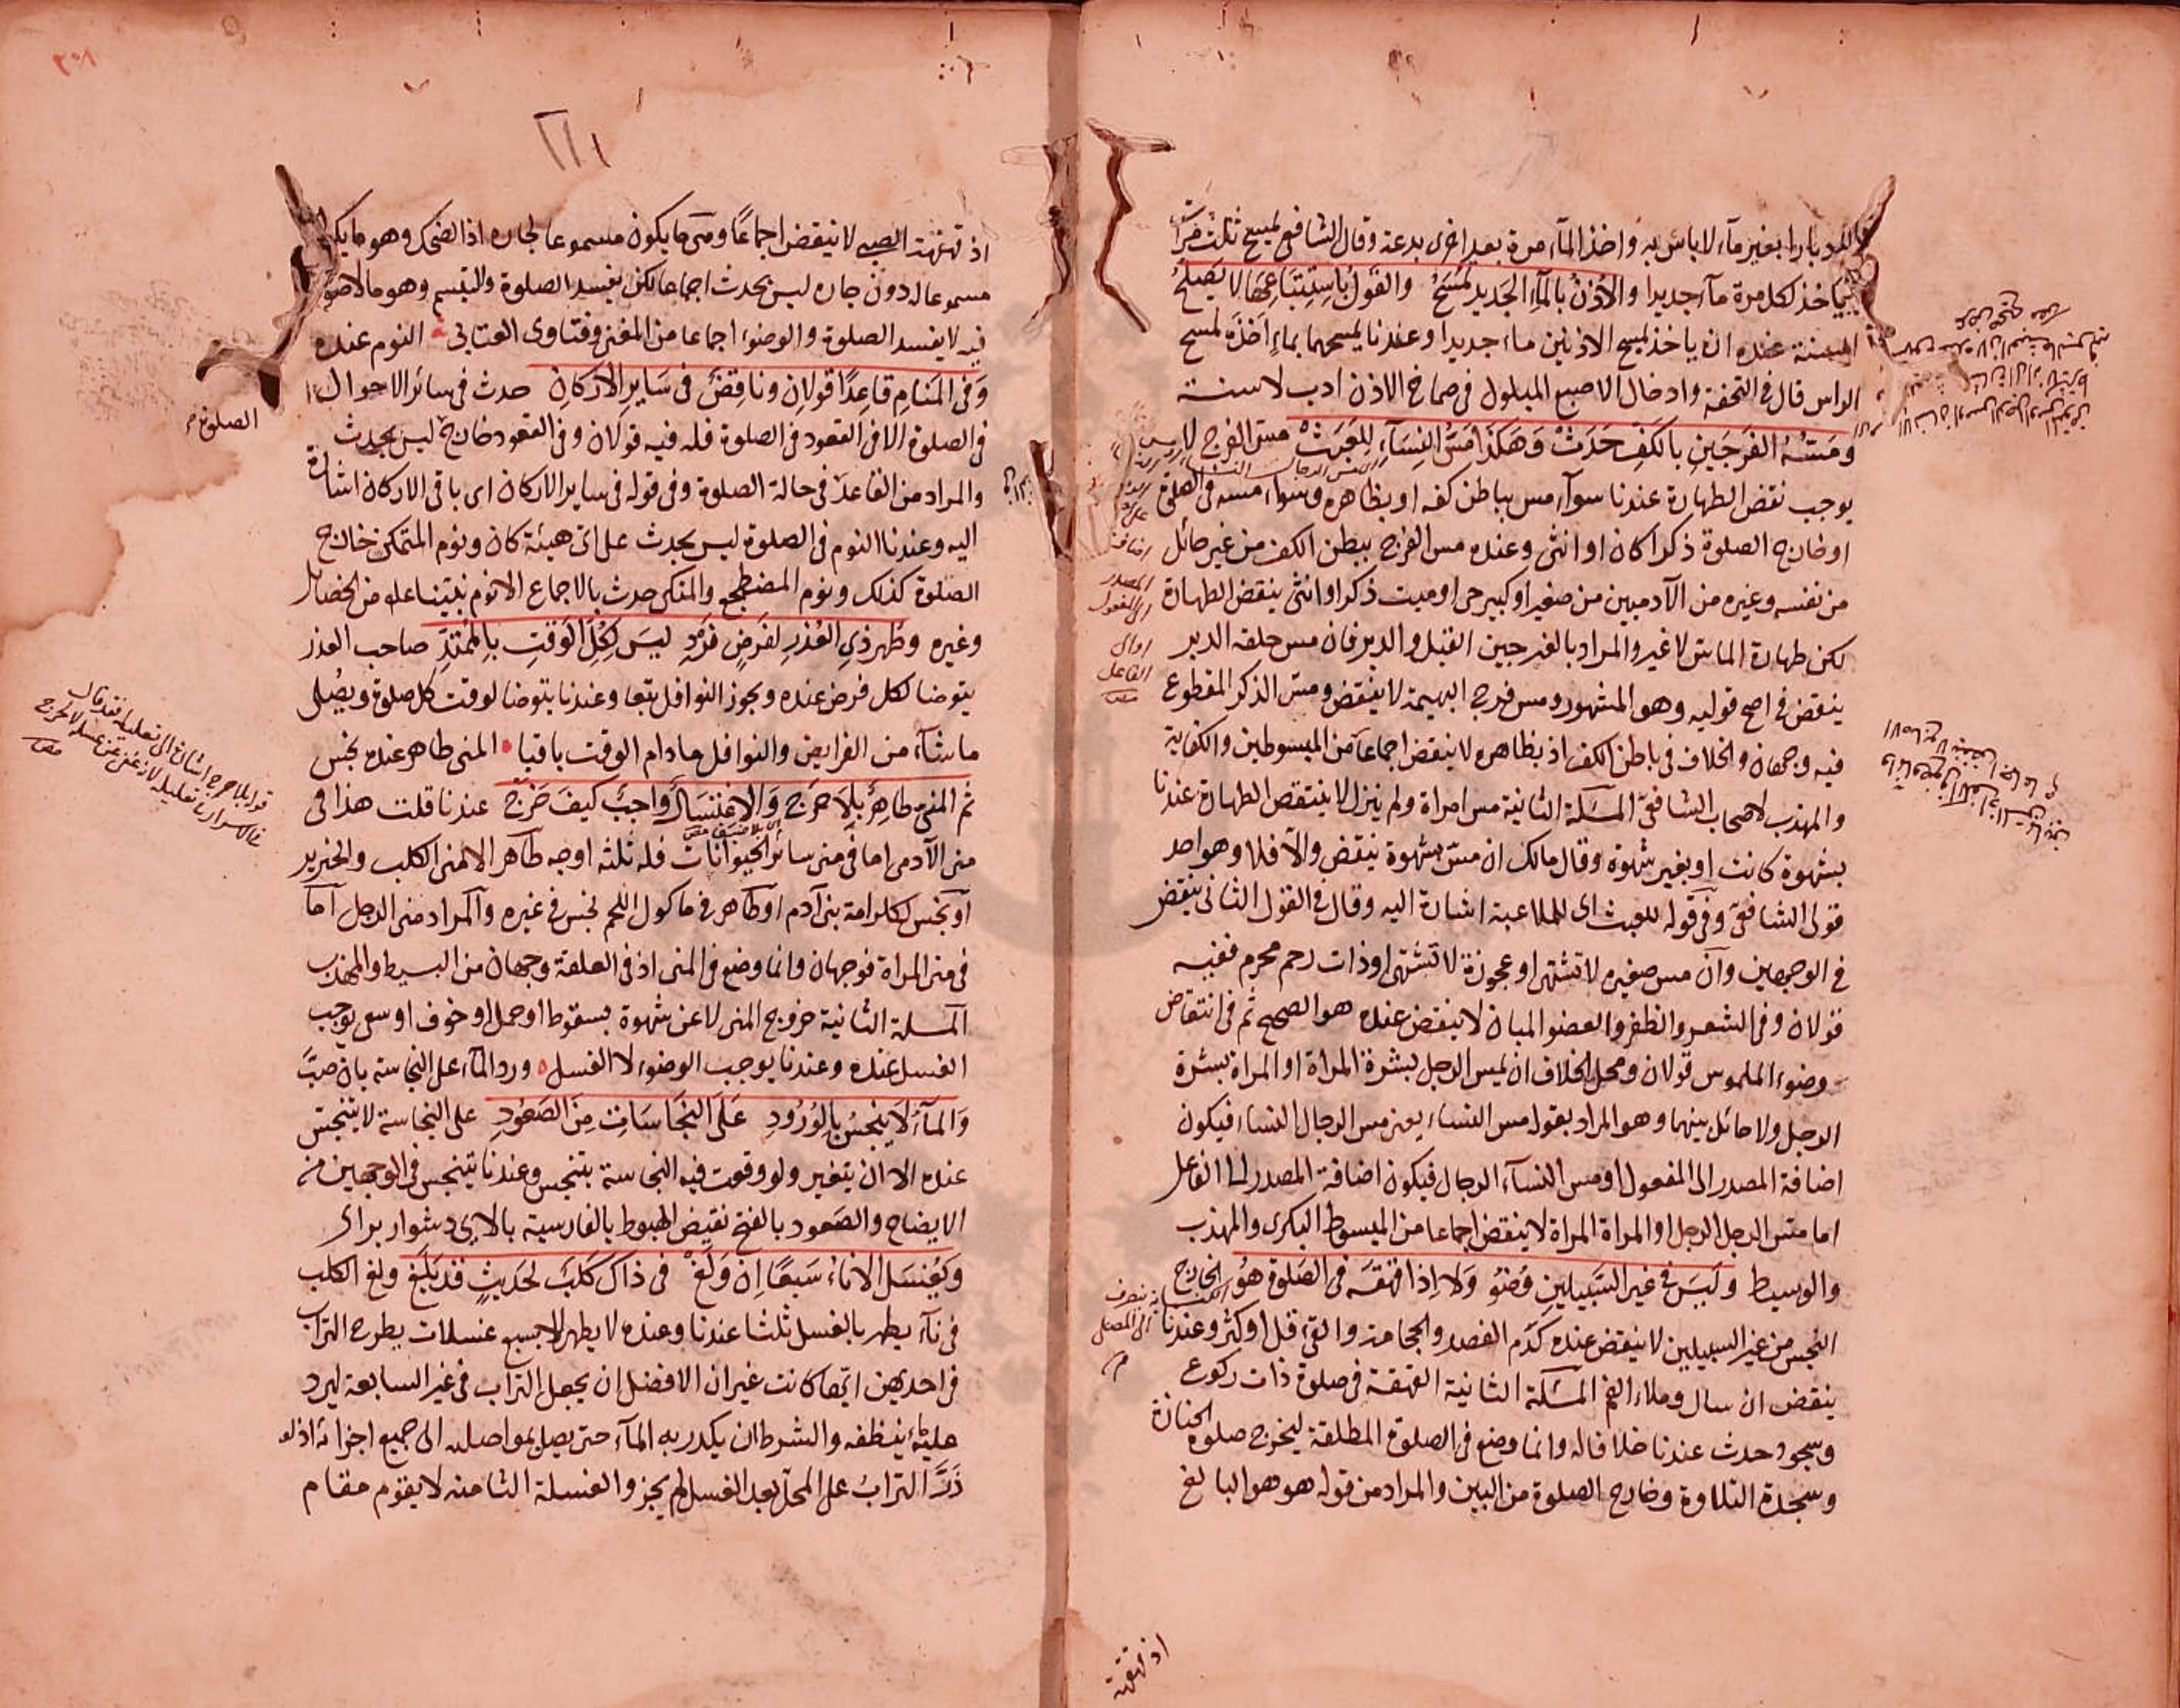 بغير ماء لا بأس به واخذ الماء مرة بعد اخرى بدعة وقال الشافعي يمسح ثلث مرات
ياخذ لكل مرة ماء جديدا والاذن بالماء الجديد تمسح والقول باستتباعها لا يصلح
السنة عنده ان ياخذ لمسح الاذنين ماء جديدا وعندنا يمسحهما بماء اخذه لمسح
الراس قال في التحفة وادخال الاصبع المبلول في صماخ الاذن ادب لا سنة
ومسه الفرجين بالكف حدث وهكذا مس النساء للعبث مس الفرج لا
يوجب نقض الطهارة عندنا سواء مس بباطن كفه او بظاهره وسواء مسه في الصلوة
او خارج الصلوة ذكرا كان او انثى وعنده مس الفرج ببطن الكف من غير حائل
من نفسه وغيره من الآدميين من صغير او كبير حي او ميت ذكر او انثى ينقض الطهارة
لكن طهارة الماس لا غير والمراد بالفرجين القبل والدبر فان مس حلقه الدبر
ينقض في اصح قوليه وهو المشهور ومس فرج البهيمة لا ينقض ومس الذكر المقطوع
فيه وجهان والخلاف في باطن الكف اذ بظاهره لا ينقض اجماعا من المبسوطين والكفاية
والمهذب لاصحاب الشافعي المسئلة الثانية مس امراة ولم ينزل لا ينتقض الطهارة عندنا
بشهوة كانت او بغير شهوة وقال مالك ان مس بشهوة ينقض والا فلا وهو احد
قولي الشافعي وفي قوله للعبث اى للملاعبة اشارة اليه وقال في القول الثاني ينقض
في الوجهين وان مس صغيره لا تشتهى او عجوزة لا تشتهى او ذات رحم محرم ففيه
قولان وفي الشعر والظفر والعضو المبان لا ينقض عنده هو الصحيح ثم في انتقاض
وضوء الملموس قولان ومحل الخلاف ان يمس الرجل بشرة المراة او المراة بشرة
الرجل ولا حائل بينهما وهو المراد بقوله مس النساء يعني مس الرجال النساء فيكون
اضافة المصدر الى المفعول او مس النساء الرجال فيكون اضافة المصدر الى الفاعل
اما مس الرجل الرجل او المراة المراة لا ينقض اجماعا من المبسوط البكرى والمهذب
والوسيط وليس في غير السبيلين وضو ولا اذا قهقه في الصلوة هو الخارج
النجس من غير السبيلين لا ينقض عنده كدم الفصد والحجامة والقئ قل او كثر وعندنا
ينقض ان سال وملاء الفم المسئلة الثانية القهقهة في صلوة ذات ركوع
وسجود حدث عندنا خلافا له وانما وضع في الصلوة المطلقة ليخرج صلوة الجنازة
وسجدة التلاوة وخارج الصلوة من البين والمراد من قوله هو هو البالغ
اضافة
المصدر
الى المفعول
او الى
الفاعل
اذ قهقهة
اذ قهقهة الصبي لا ينقض اجماعا وهي ما يكون مسموعا لجاره اذ الضحك وهو ما يكون
مسموعا له دون جاره ليس بحدث اجماعا لكن يفسد الصلوة والتبسم وهو ما لا صوت
فيه لا يفسد الصلوة والوضوء اجماعا من المغني وفتاوى العتابي النوم عنده
وفي المنام قاعدا قولان وناقض في ساير الاركان حدث في سائر الاحوال
في الصلوة الا في القعود في الصلوة فله فيه قولان وفي القعود خارج ليس بحدث
والمراد من القاعد في حالة الصلوة وفي قوله في ساير الاركان اى باقى الاركان اشارة
اليه وعندنا النوم في الصلوة ليس بحدث على اى هيئة كان ونوم المتمكن خارج
الصلوة كذلك ونوم المضطجع والمتكى حدث بالاجماع الا نوم نبينا علم من الخصائل
وغيره وطهر ذي العذر لفرض فرد ليس لكل الوقت بالممتد صاحب العذر
يتوضا لكل فرض عنده ويجوز النوافل تبعا وعندنا يتوضا لوقت كل صلوة ويصلى
ما شاء من الفرايض والنوافل ما دام الوقت باقيا المني طاهر عنده نجس
ثم المني طاهر بلا حرج والاغتسال واجب كيف خرج عندنا قلت هذا في
مني الآدمي اما في مني سائر الحيوانات فله ثلثه اوجه طاهر الا مني الكلب والخنزير
او نجس لكرامة بني آدم او طاهر في ماكول اللحم نجس في غيره والمراد مني الرجل اما
في مني المراة فوجهان وانما وضع في المني اذ في العلقة وجهان من البسيط والمهذب
المسلة الثانية خروج المني لا عن شهوة بسقوط او حمل او خوف او سعى يوجب
الغسل عنده وعندنا يوجب الوضوء لا الغسل ورد الماء على النجاسة بان صب
والماء لا ينجس بالورود على النجاسات من الصعود على النجاسة لا يتنجس
عنده الا ان يتغير ولو وقعت فيه النجاسة يتنجس وعندنا يتنجس في الوجهين من
الايضاح والصعود بالفتح نقيض الهبوط بالفارسية بالاى دشوار براى
ويغسل الاناء سبعا ان ولغ في ذاك كلب لحديث قد بلغ ولغ الكلب
في اناء يطهر بالغسل ثلثا عندنا وعنده لا يطهر الا بسبع غسلات يطرح التراب
في احديهن ايتها كانت غير ان الافضل ان يجعل التراب في غير السابعة ليرد
عليه ما ينظفه والشرط ان يكدر به الماء حتى يصل بمواصلته الى جميع اجزائه اذ لو
ذر التراب على المحل بعد الغسل لم يجز والغسلة الثامنة لا يقوم مقام
الصلوة